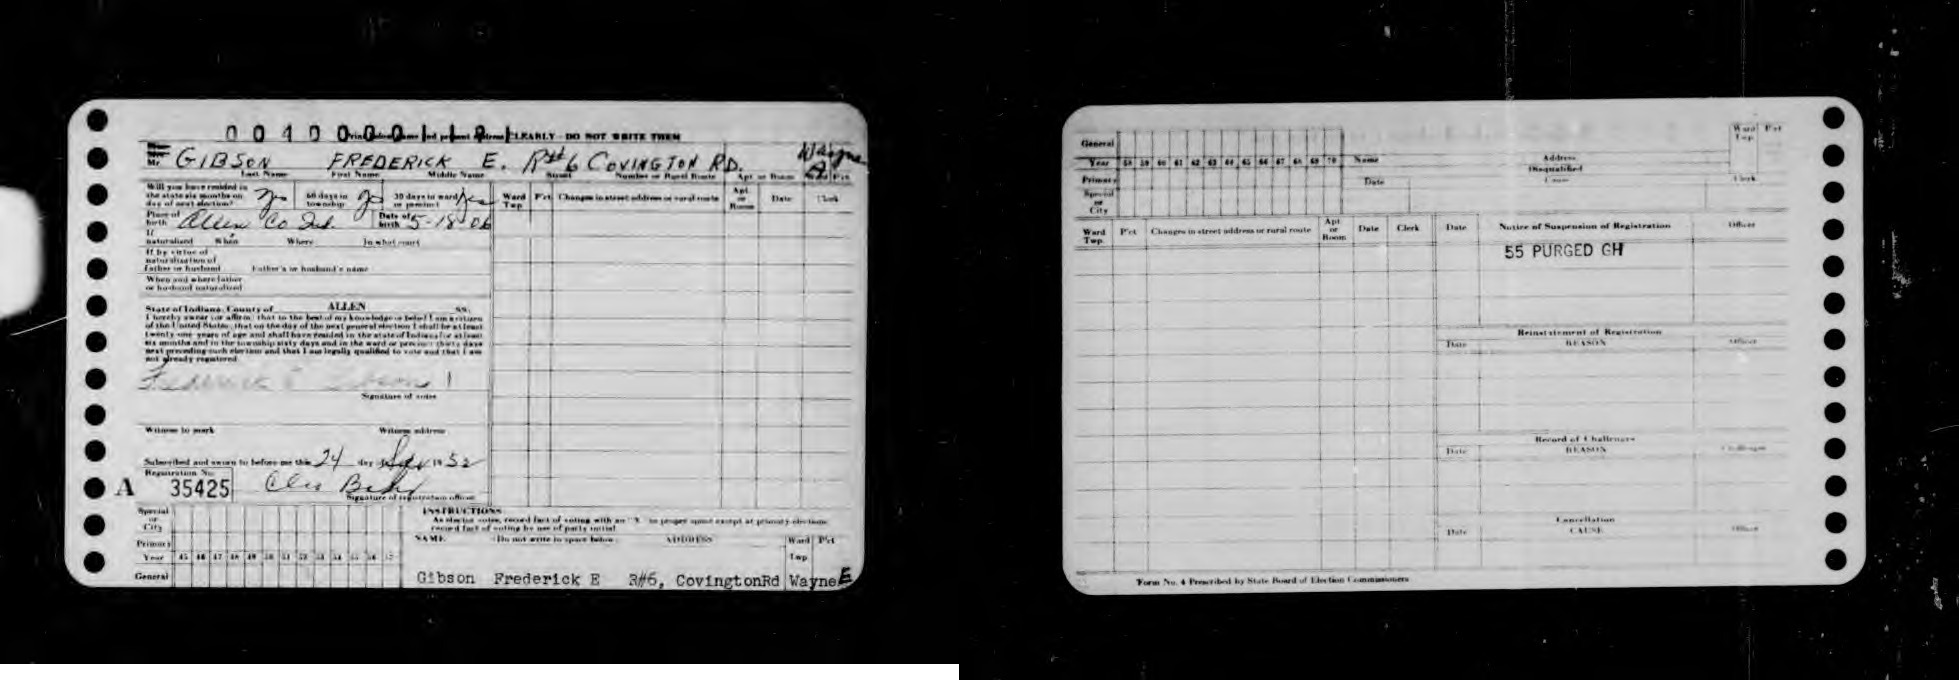 0 0 4 0 0 0 0 1 1 8 1
CLEARLY - DO NOT WRITE THEM
Mr. GIBSON FREDERICK E. R#6 COVINGTON RD. Wayne A
Last Name First Name Middle Name Street Number or Rural Route Apt or Room Ward Pct.
Will you have resided in the state six months on day of next election? Yes 60 days in township Yes 30 days in ward or precinct Yes
Ward Twp. P'ct Changes in street address or rural route Apt. or Room Date Clerk
Place of birth Allen Co Ind. Date of birth 5-18-06
If naturalized When Where In what court
If by virtue of naturalization of father or husband Father's or husband's name
When and where father or husband naturalized
State of Indiana, County of ALLEN SS.
I hereby swear or affirm, that to the best of my knowledge or belief I am a citizen
of the United States, that on the day of the next general election I shall be at least
twenty-one years of age and shall have resided in the state of Indiana for at least
six months and in the township sixty days and in the ward or precinct thirty days
next preceding such election and that I am legally qualified to vote and that I am
not already registered
Frederick E Gibson
Signature of voter
Witness to mark Witness address
Subscribed and sworn to before me this 24 day 19 52
Registration No.
A 35425
Signature of registration officer
Special or City
Primary
Year 45 46 47 48 49 50 51 52 53 54 55 56 57
General
INSTRUCTIONS
As elector votes, record fact of voting with an "X" in proper space except at primary elections
record fact of voting by use of party initial
NAME Do not write in space below ADDRESS Ward Twp P'ct
Gibson Frederick E R#6, CovingtonRd Wayne E
General
Year 58 59 60 61 62 63 64 65 66 67 68 69 70
Primary
Special or City
Name Address Ward Twp. P'ct
Disqualified
Date Cause Clerk
Ward Twp. P'ct Changes in street address or rural route Apt or Room Date Clerk
Date Notice of Suspension of Registration Officer
55 PURGED GH
Reinstatement of Registration
Date REASON Officer
Record of Challenges
Date REASON Challenger
Cancellation
Date CAUSE Officer
Form No. 4 Prescribed by State Board of Election Commissioners